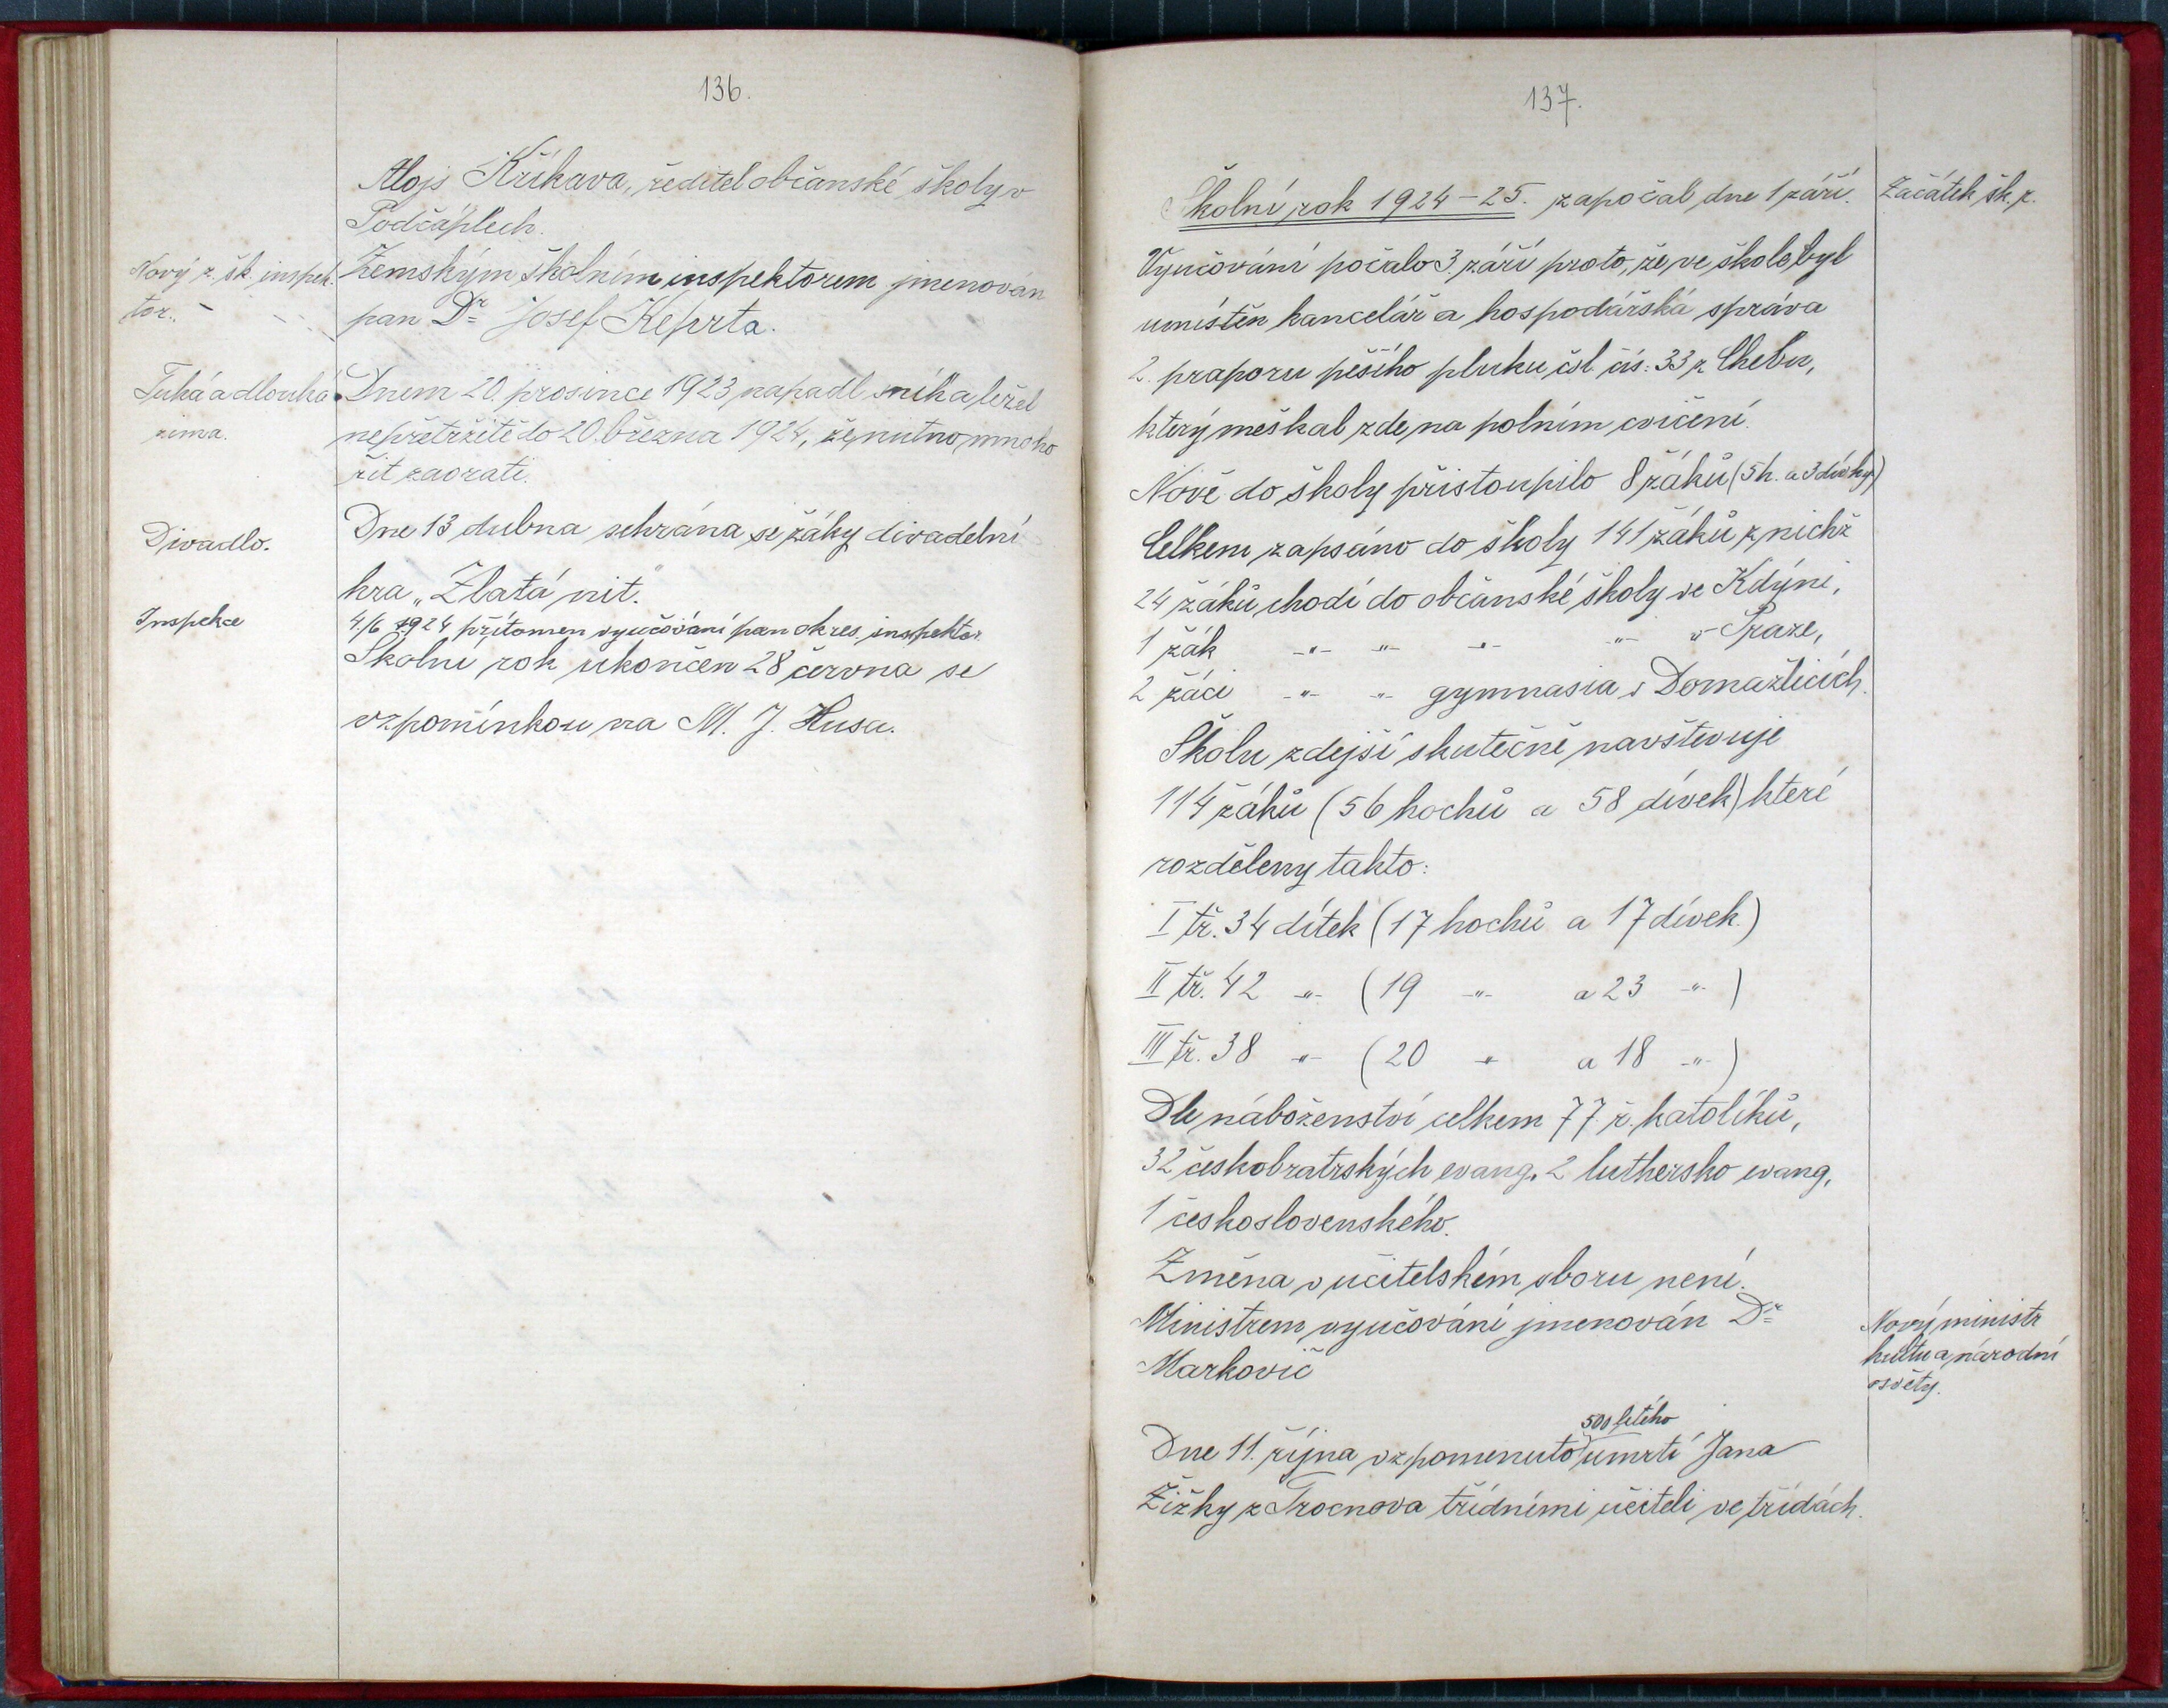 136.
Alojs Křikava, ředitel občanské školy v
Podčáplech.
Nový z. šk. inspek-
tor.
Zemským školním inspektorem jmenován
pan Dr Josef Keprta.
Tuhá a dlouhá
zima.
Dnem 20. prosince 1923 napadl sníh a ležel
nepřetržitě do 20. března 1924, že nutno mnoho
žit zaorati.
Divadlo.
Dne 13 dubna sehrána se žáky divadelní
hra „Zlatá nit."
Inspekce
4./6 1924 přítomen vyučování pan okres. inspektor.
Školní rok ukončen 28 června se
vzpomínkou na M. J. Husa.
137.
Školní rok 1924-25. započal dne 1 září.
Začátek šk. r.
Vyučování počalo 3. září proto, že ve škole byl
umístěn kancelář a hospodářská správa
2. praporu pěšího pluku čsl. čís: 33 z Chebu,
který meškal zde na polním cvičení.
Nově do školy přistoupilo 8 žáků (5 h. a 3 dívky)
Celkem zapsáno do školy 141 žáků z nichž
24 žáků chodí do občanské školy ve Kdýni,
1 žák -„- -„- -„- -„- v Praze,
2 žáci -„- -„- gymnasia v Domažlicích.
Školu zdejší skutečně navštěvuje
114 žáků (56 hochů a 58 dívek) které
rozděleny takto:
I tř. 34 dítek (17 hochů a 17 dívek.)
II tř. 42 -„- (19 -„- a 23 -„-)
III tř. 38 -„- (20 -„- a 18 -„-)
Dle náboženství celkem 77 ř. katolíků,
32 českobratrských evang. 2 luthersko evang,
1 československého.
Změna v učitelském sboru není.
Ministrem vyučování jmenován Dr
Markovič
Nový ministr
kultu a národní
osvěty.
500 letého
Dne 11. října vzpomenuto úmrtí Jana
Žižky z Trocnova třídními učiteli ve třídách.